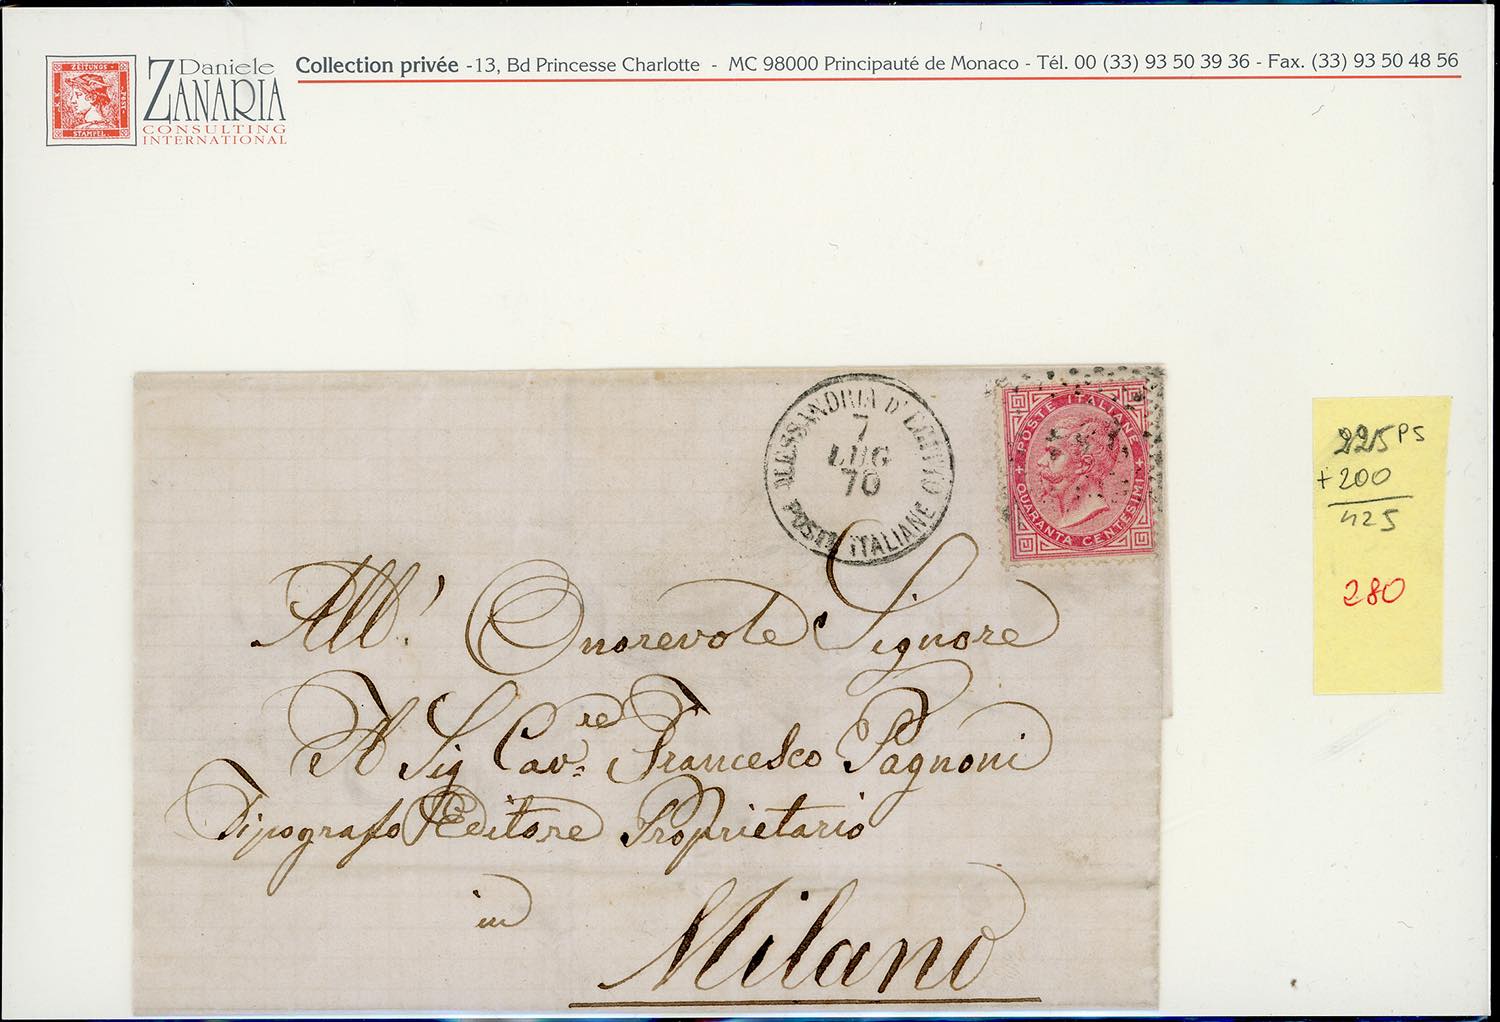 ZEITUNGS
POST
STAMPEL
Daniele
ZANARIA
CONSULTING
INTERNATIONAL
Collection privée -13, Bd Princesse Charlotte - MC 98000 Principauté de Monaco - Tél. 00 (33) 93 50 39 36 - Fax. (33) 93 50 48 56
ALESSANDRIA D'EGITTO
7
LUG
70
POSTE ITALIANE
POSTE ITALIANE
QUARANTA CENTESIMI
225 PS
+ 200
425
280
All' Onorevole Signore
Il Sig Cav.re Francesco Pagnoni
Tipografo Editore Proprietario
in
Milano